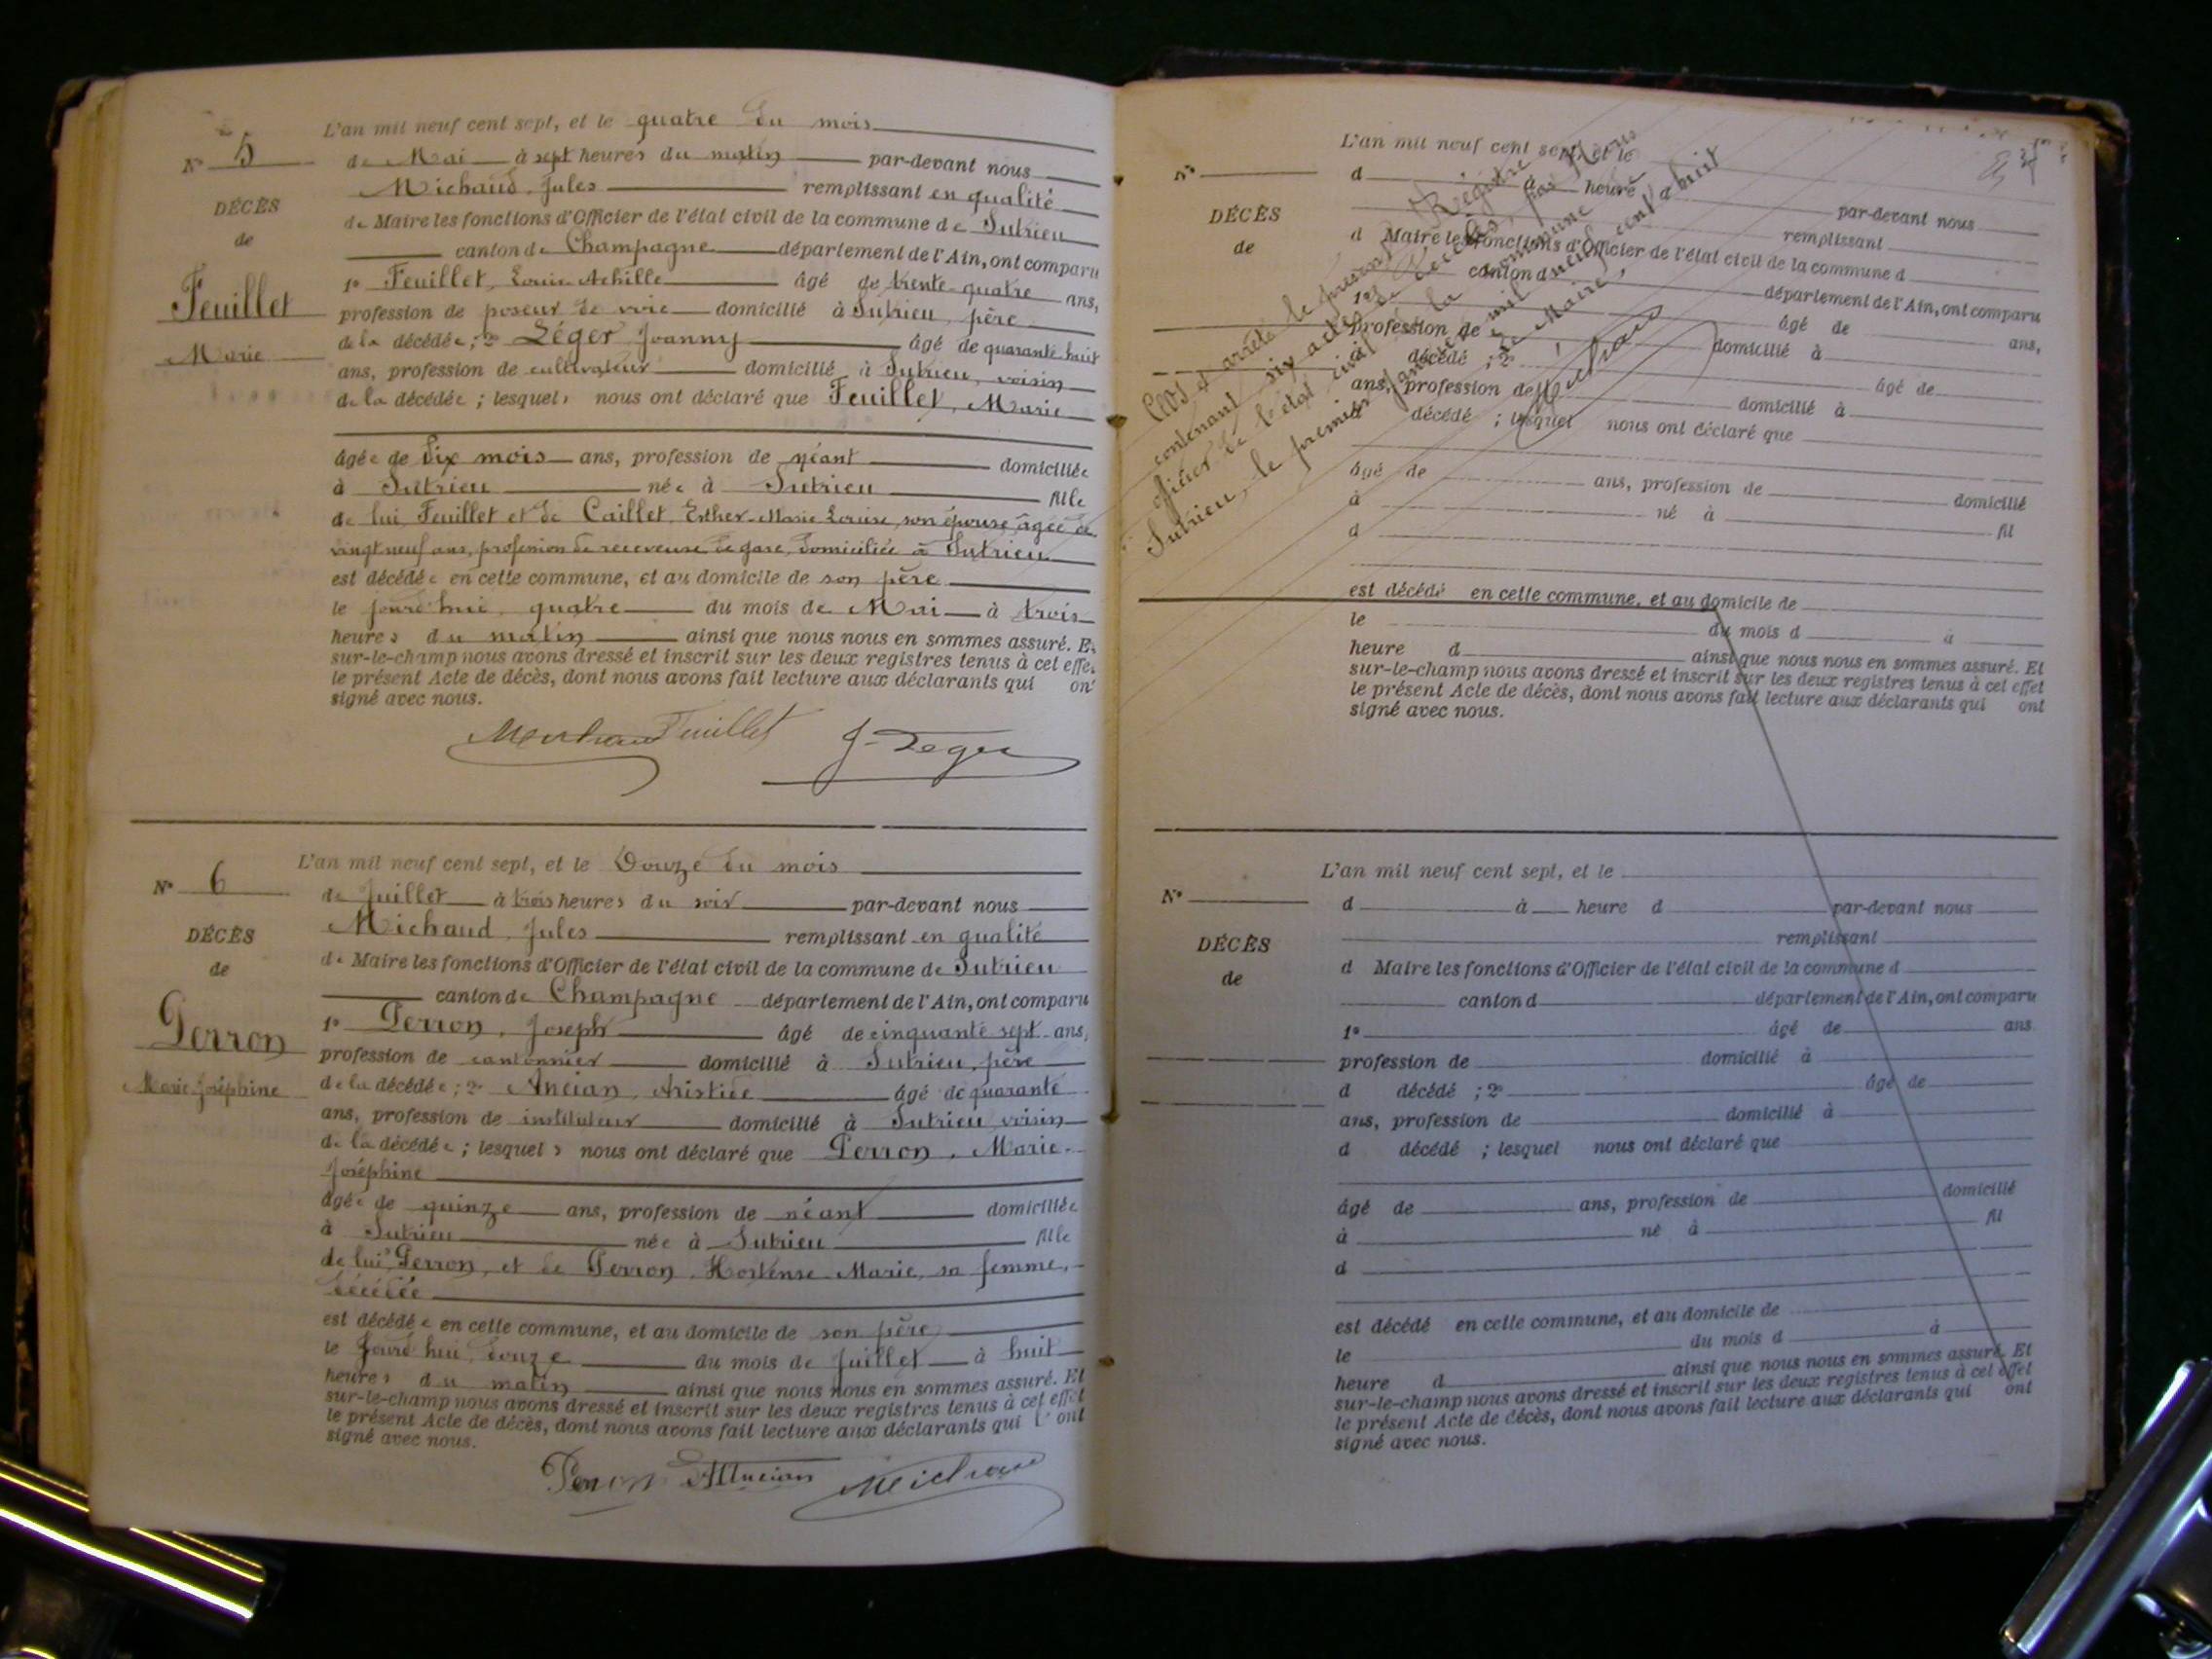 L'an mil neuf cent sept, et le quatre du mois
N° 5
de Mai à sept heures du matin par-devant nous
Michaud, Jules remplissant en qualité
DÉCÈS
de Maire les fonctions d'Officier de l'état civil de la commune de Sutrieu
de
canton de Champagne département de l'Ain, ont comparu
1° Feuillet, Louis Achille âgé de trente-quatre ans,
Feuillet
profession de poseur de voie domicilié à Sutrieu, père
de la décédée ; 2° Léger Joanny âgé de quarante huit
Marie
ans, profession de cultivateur domicilié à Sutrieu, voisin
de la décédée ; lesquels nous ont déclaré que Feuillet, Marie
âgée de dix mois ans, profession de néant domiciliée
à Sutrieu née à Sutrieu fille
de lui Feuillet et de Caillet, Esther-Marie Louise, son épouse âgée de
vingt neuf ans, profession de receveuse de gare, domiciliée à Sutrieu
est décédée en cette commune, et au domicile de son père
le jourd'hui quatre du mois de Mai à trois
heures du matin ainsi que nous nous en sommes assuré. Et
sur-le-champ nous avons dressé et inscrit sur les deux registres tenus à cet effet
le présent Acte de décès, dont nous avons fait lecture aux déclarants qui ont
signé avec nous.
Michaud Feuillet J. Léger
L'an mil neuf cent sept, et le Douze du mois
N° 6
de Juillet à trois heures du soir par-devant nous
Michaud, Jules remplissant en qualité
DÉCÈS
de Maire les fonctions d'Officier de l'état civil de la commune de Sutrieu
de
canton de Champagne département de l'Ain, ont comparu
1° Perron, Joseph âgé de cinquante sept ans,
Perron
profession de cantonnier domicilié à Sutrieu, père
Marie Joséphine
de la décédée ; 2° Ancian, Aristide âgé de quarante
ans, profession de instituteur domicilié à Sutrieu, voisin
de la décédée ; lesquels nous ont déclaré que Perron, Marie-
Joséphine
âgée de quinze ans, profession de néant domiciliée
à Sutrieu née à Sutrieu fille
de lui Perron, et de Perron, Hortense Marie, sa femme,
décédée
est décédée en cette commune, et au domicile de son père
le jourd'hui, douze du mois de Juillet à huit
heures du matin ainsi que nous nous en sommes assuré. Et
sur-le-champ nous avons dressé et inscrit sur les deux registres tenus à cet effet
le présent Acte de décès, dont nous avons fait lecture aux déclarants qui l'ont
signé avec nous.
Perron Ancian Michaud
L'an mil neuf cent sept, et le
N°
d à heure
par-devant nous
DÉCÈS
remplissant
de
d Maire les fonctions d'Officier de l'état civil de la commune d
canton d département de l'Ain, ont comparu
1° âgé de ans,
profession de domicilié à
d décédé ; 2° âgé de
ans, profession de domicilié à
d décédé ; lesquel nous ont déclaré que
âgé de ans, profession de domicilié
à né à fil
d
est décédé en cette commune, et au domicile de
le du mois d à
heure d ainsi que nous nous en sommes assuré. Et
sur-le-champ nous avons dressé et inscrit sur les deux registres tenus à cet effet
le présent Acte de décès, dont nous avons fait lecture aux déclarants qui ont
signé avec nous.
Clos et arrêté le présent Régistre
contenant six actes de décès, par nous
officier de l'état civil de la commune
Sutrieu, le premier Janvier mil neuf cent huit
Le Maire,
Michaud
L'an mil neuf cent sept, et le
N°
d à heure d par-devant nous
DÉCÈS
remplissant
de
d Maire les fonctions d'Officier de l'état civil de la commune d
canton d département de l'Ain, ont comparu
1° âgé de ans
profession de domicilié à
d décédé ; 2° âgé de
ans, profession de domicilié à
d décédé ; lesquel nous ont déclaré que
âgé de ans, profession de domicilié
à né à fil
d
est décédé en cette commune, et au domicile de
le du mois d à
heure d ainsi que nous nous en sommes assuré. Et
sur-le-champ nous avons dressé et inscrit sur les deux registres tenus à cet effet
le présent Acte de décès, dont nous avons fait lecture aux déclarants qui ont
signé avec nous.